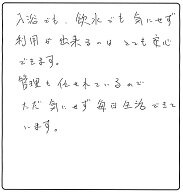 入浴でも、飲水でも気にせず
利用が出来るのはとても安心
できます。
管理も任せれているので
ただ気にせず毎日生活できて
います。